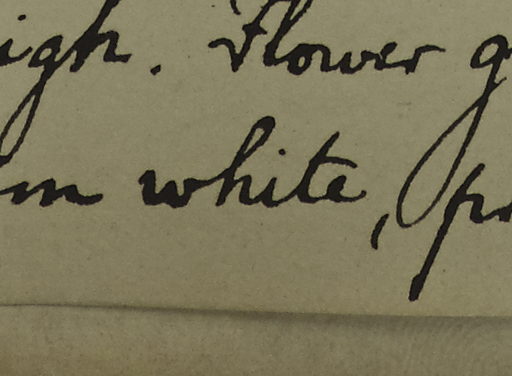 igh. Flower g
m white, pr